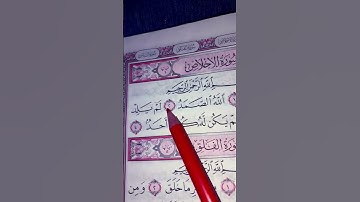 سُورَةُ الْإِخْلَاصِ
ـمِ اللَّهِ الرَّحْمَٰنِ الرَّحِيمِ
اللَّهُ الصَّمَدُ ۝٢ لَمْ يَلِدْ
لَمْ يَكُن لَّهُ كُ أَحَدٌ ۝٤
سُورَةُ الْفَلَقِ
اللَّهِ الرَّحْمَٰنِ الرَّحِيمِ
مَا خَلَقَ ۝٢ وَمِن